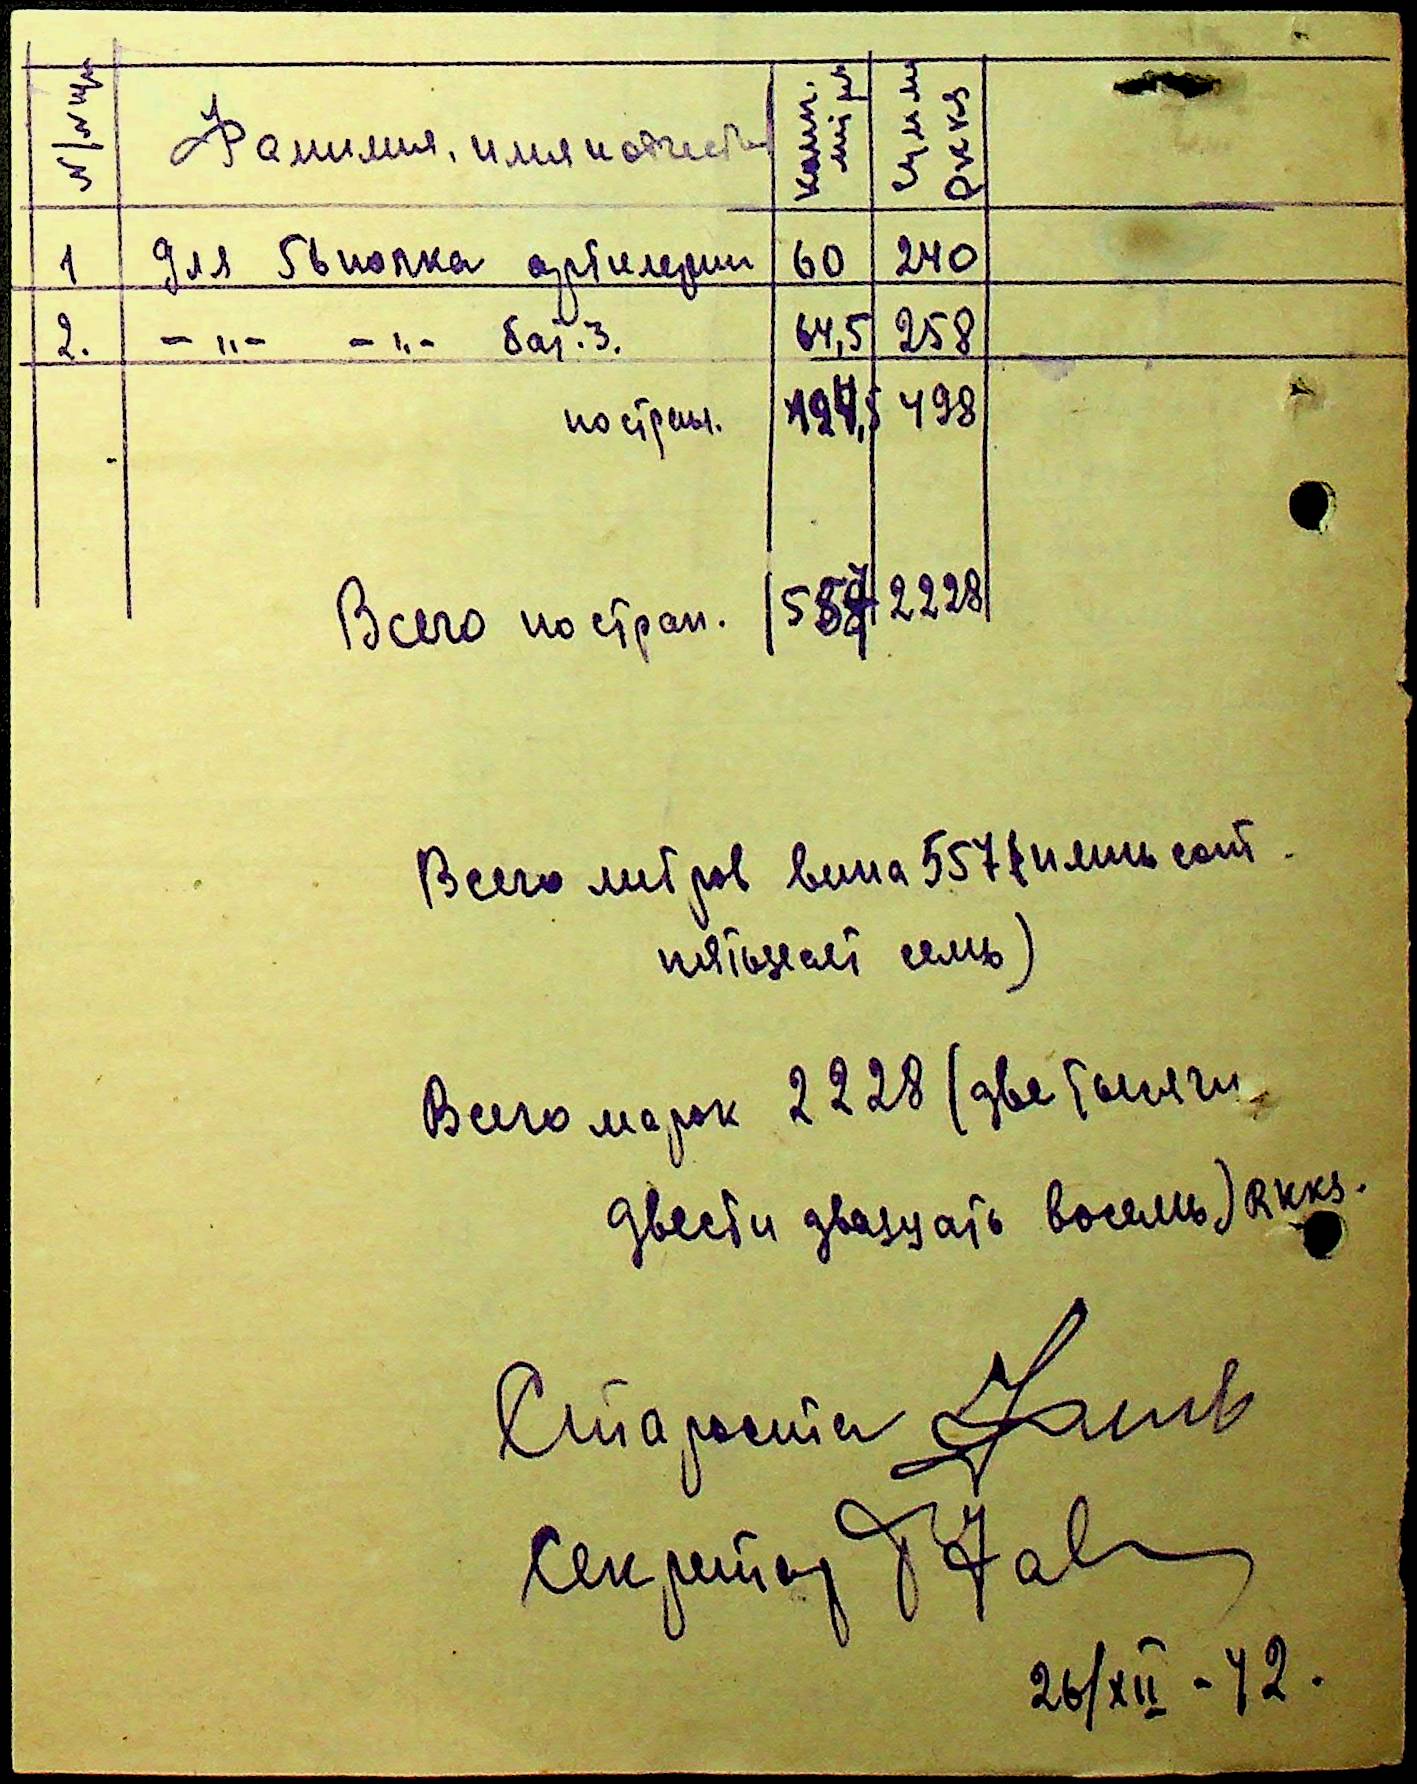 N/N п/п Фамилия, имя и отчество Колич. литр. Сумм RKKS
1 для 56 полка артилерии 60 240
2. - „ - - „ - бат. 3. 64,5 258
по стран. 124,5 498
Всего по стран. 557 2228
Всего литров вина 557 (пятьсот
пятьдесят семь)
Всего марок 2228 (две тысячи
двести двадцать восемь) RKKS.
Староста
Секретар
26/XII - 42.